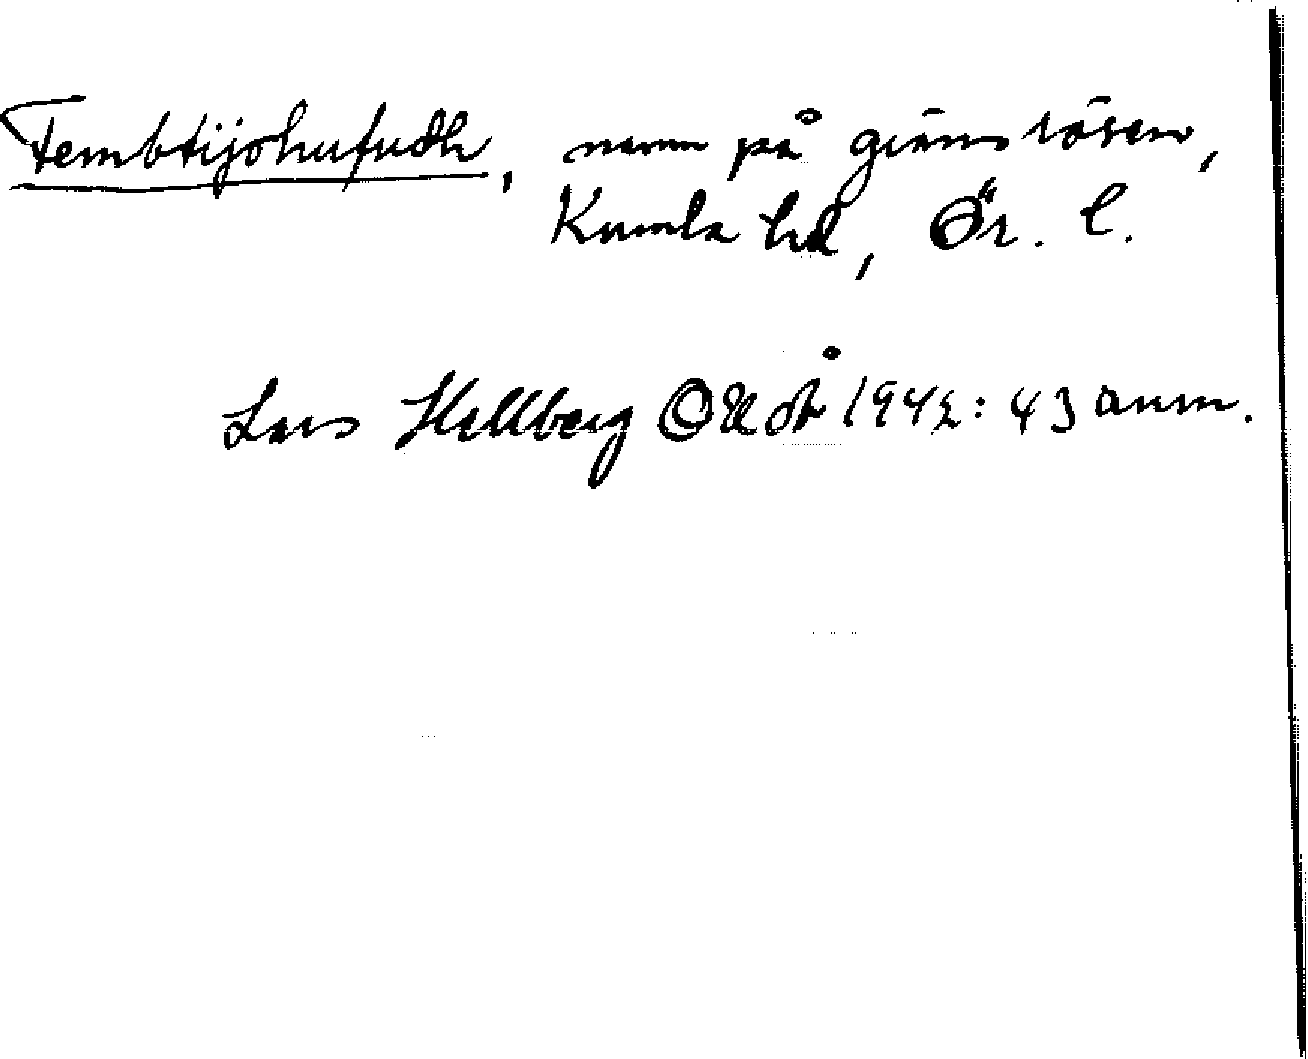 Fembtijohufudh, namn på gränsrösen,
Kumla hd, Ör. l.
Lars Hellberg OUÅ 1942: 43 anm.